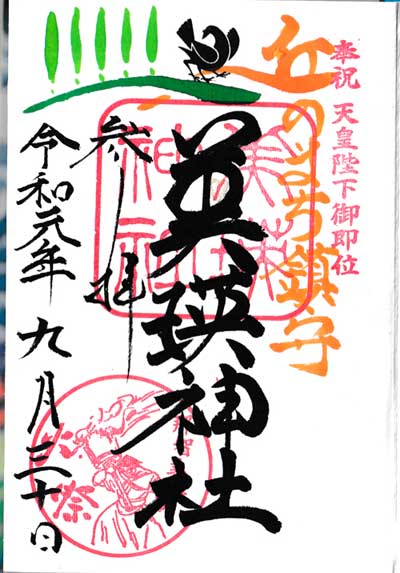 奉祝 天皇陛下御即位
丘のまち鎮守
美瑛神社
美瑛
神社
参拝
令和元年九月三十日
那智
火祭